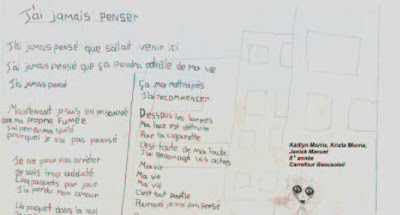 J'ai jamais penser
J'ai jamais pensé que sa'llait venir ici
J'ai jamais pensé que ça pendra contrôle de ma vie
J'ai jamais pensé
Maintenant je suis en prisonné
dans ma propre fumée
J'ai perdu ma santé
pourquoi je n'ai pas pensé
Je ne peux pas arrêter
Je suis trop addicté
Cinq paquets par jour
J'ai perdu mon amour
Un paquet dans la nuit
Ça ma rattrapés
J'ai recommencer
Dessous les larmes
Ma face est détruite
Par la cigarette
C'est toute de ma faute
J'ai encouragé les autres
Ma vie
Ma vie
Ma vie
C'est tout partie
Pourquoi je n'ai pas pensé
Kaitlyn Morris, Krista Morris,
Janick Manuel
8e année
Carrefour Beausoleil